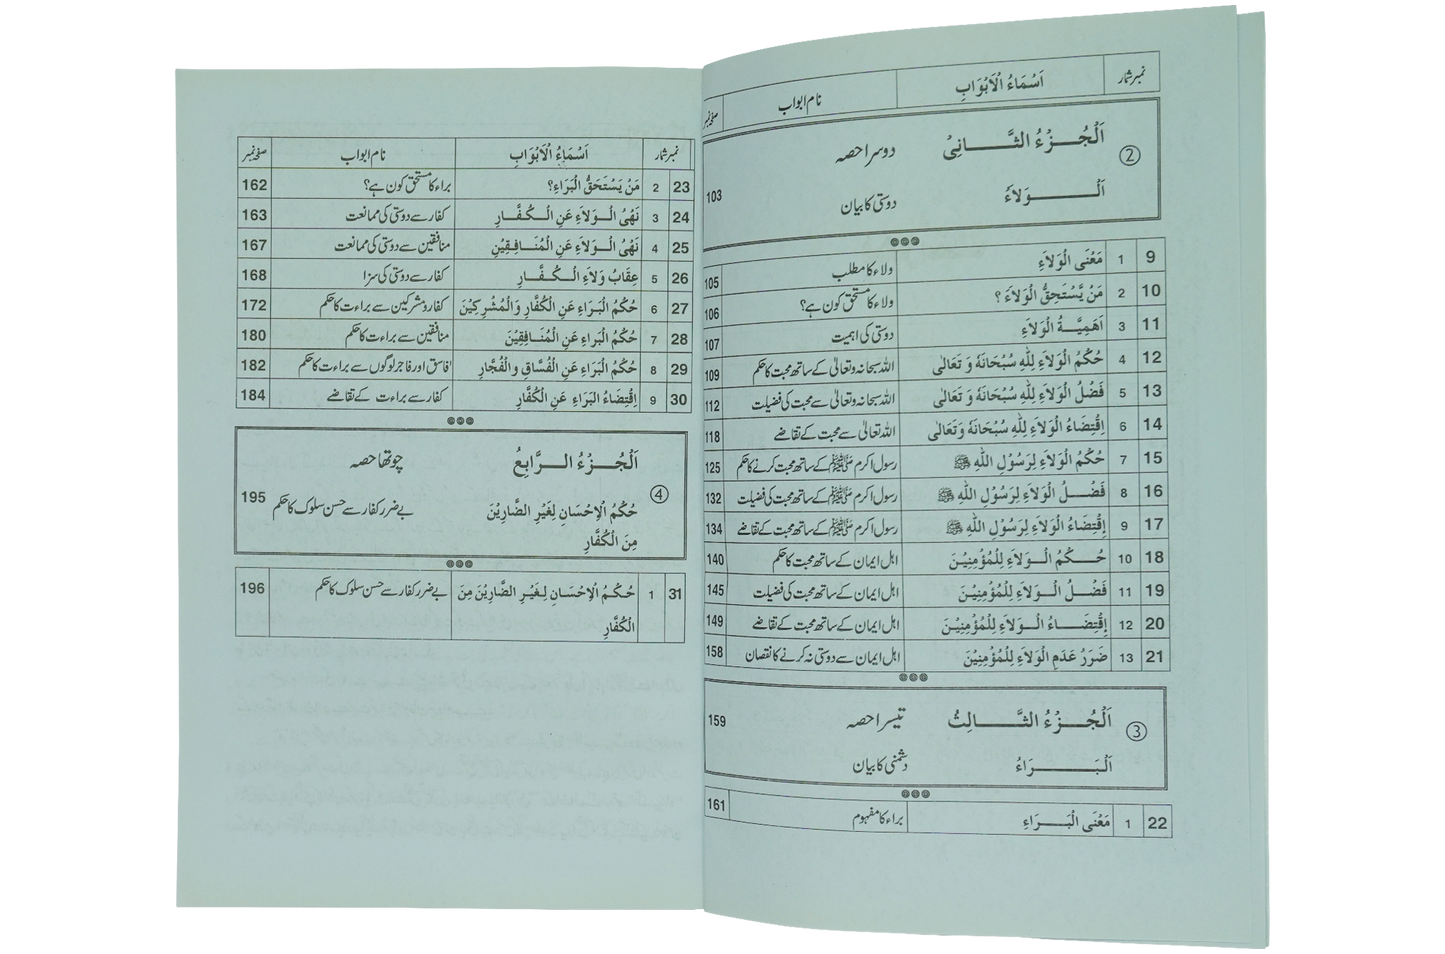 نمبر شمار اَسْمَاءُ الْاَبْوَابِ نام ابواب صفحہ نمبر
② اَلْجُزْءُ الثَّانِیْ دوسرا حصہ
اَلْوَلَاءُ دوستی کا بیان 103
9 1 مَعْنَی الْوَلَاءِ ولاء کا مطلب 105
10 2 مَنْ یَّسْتَحِقُّ الْوَلَاءَ ؟ ولاء کا مستحق کون ہے؟ 106
11 3 اَهَمِیَّةُ الْوَلَاءِ دوستی کی اہمیت 107
12 4 حُكْمُ الْوَلَاءِ لِلّٰهِ سُبْحَانَهٗ وَ تَعَالٰی اللہ سبحانہ وتعالیٰ کے ساتھ محبت کا حکم 109
13 5 فَضْلُ الْوَلَاءِ لِلّٰهِ سُبْحَانَهٗ وَ تَعَالٰی اللہ سبحانہ وتعالیٰ سے محبت کی فضیلت 112
14 6 اِقْتِضَاءُ الْوَلَاءِ لِلّٰهِ سُبْحَانَهٗ وَتَعَالٰی اللہ تعالیٰ سے محبت کے تقاضے 118
15 7 حُكْمُ الْوَلَاءِ لِرَسُوْلِ اللّٰهِ ﷺ رسول اکرم ﷺ کے ساتھ محبت کرنے کا حکم 125
16 8 فَضْلُ الْوَلَاءِ لِرَسُوْلِ اللّٰهِ ﷺ رسول اکرم ﷺ کے ساتھ محبت کی فضیلت 132
17 9 اِقْتِضَاءُ الْوَلَاءِ لِرَسُوْلِ اللّٰهِ ﷺ رسول اکرم ﷺ کے ساتھ محبت کے تقاضے 134
18 10 حُكْمُ الْوَلَاءِ لِلْمُؤْمِنِیْنَ اہل ایمان کے ساتھ محبت کا حکم 140
19 11 فَضْلُ الْوَلَاءِ لِلْمُؤْمِنِیْنَ اہل ایمان کے ساتھ محبت کی فضیلت 145
20 12 اِقْتِضَاءُ الْوَلَاءِ لِلْمُؤْمِنِیْنَ اہل ایمان کے ساتھ محبت کے تقاضے 149
21 13 ضَرَرُ عَدَمِ الْوَلَاءِ لِلْمُؤْمِنِیْنَ اہل ایمان سے دوستی نہ کرنے کا نقصان 158
③ اَلْجُزْءُ الثَّالِثُ تیسرا حصہ 159
اَلْبَرَاءُ دشمنی کا بیان
22 1 مَعْنَی الْبَرَاءِ براء کا مفہوم 161
نمبر شمار اَسْمَاءُ الْاَبْوَابِ نام ابواب صفحہ نمبر
23 2 مَنْ یَسْتَحَقُّ الْبَرَاءِ؟ براء کا مستحق کون ہے؟ 162
24 3 نَهْیُ الْوَلَاءِ عَنِ الْكُفَّارِ کفار سے دوستی کی ممانعت 163
25 4 نَهْیُ الْوَلَاءِ عَنِ الْمُنَافِقِیْنِ منافقین سے دوستی کی ممانعت 167
26 5 عِقَابُ وَلَاءِ الْكُفَّارِ کفار سے دوستی کی سزا 168
27 6 حُكْمُ الْبَرَاءِ عَنِ الْكُفَّارِ وَالْمُشْرِكِیْنَ کفار و مشرکین سے براءت کا حکم 172
28 7 حُكْمُ الْبَراءِ عَنِ الْمُنَافِقِیْنَ منافقین سے براءت کا حکم 180
29 8 حُكْمُ الْبَرَاءِ عَنِ الْفُسَّاقِ والْفُجَّارِ فاسق اور فاجر لوگوں سے براءت کا حکم 182
30 9 اِقْتِضَاءُ البَرَاءِ عَنِ الْكُفَّارِ کفار سے براءت کے تقاضے 184
④ اَلْجُزْءُ الرَّابِعُ چوتھا حصہ
حُكْمُ الْاِحْسَانِ لِغَیْرِ الضَّارِیْنَ بے ضرر کفار سے حسن سلوک کا حکم 195
مِنَ الْكُفَّارِ
31 1 حُكْمُ الْاِحْسَانِ لِغَیْرِ الضَّارِیْنَ مِنَ بے ضرر کفار سے حسن سلوک کا حکم 196
الْكُفَّارِ